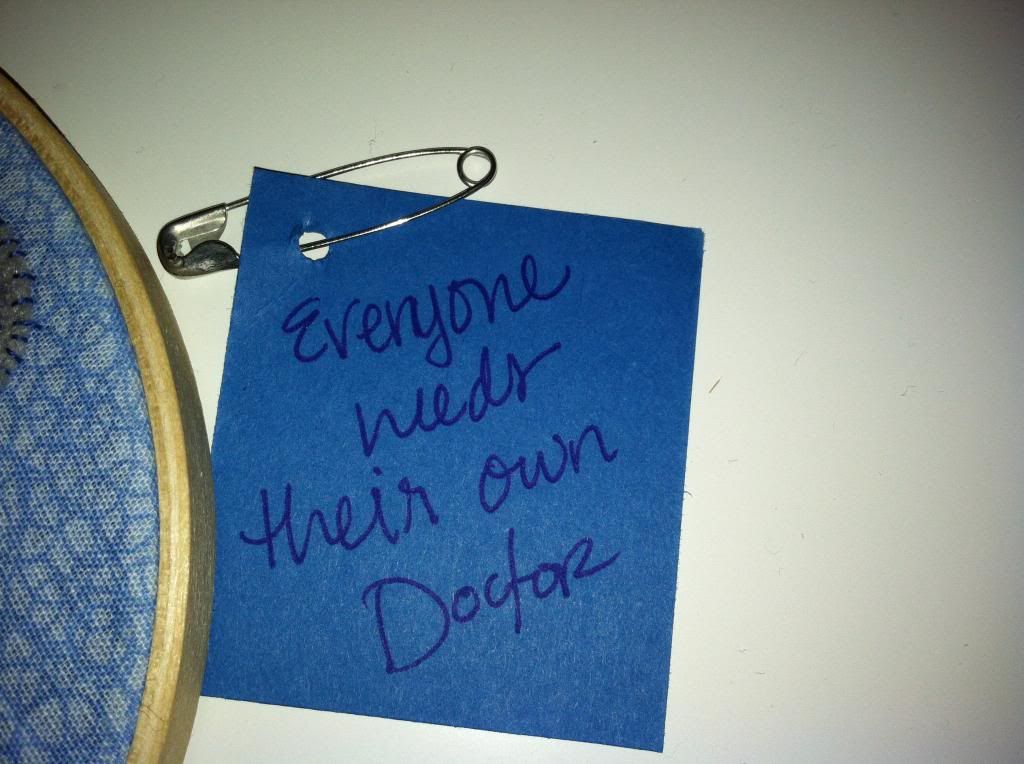 Everyone
needs
their own
Doctor